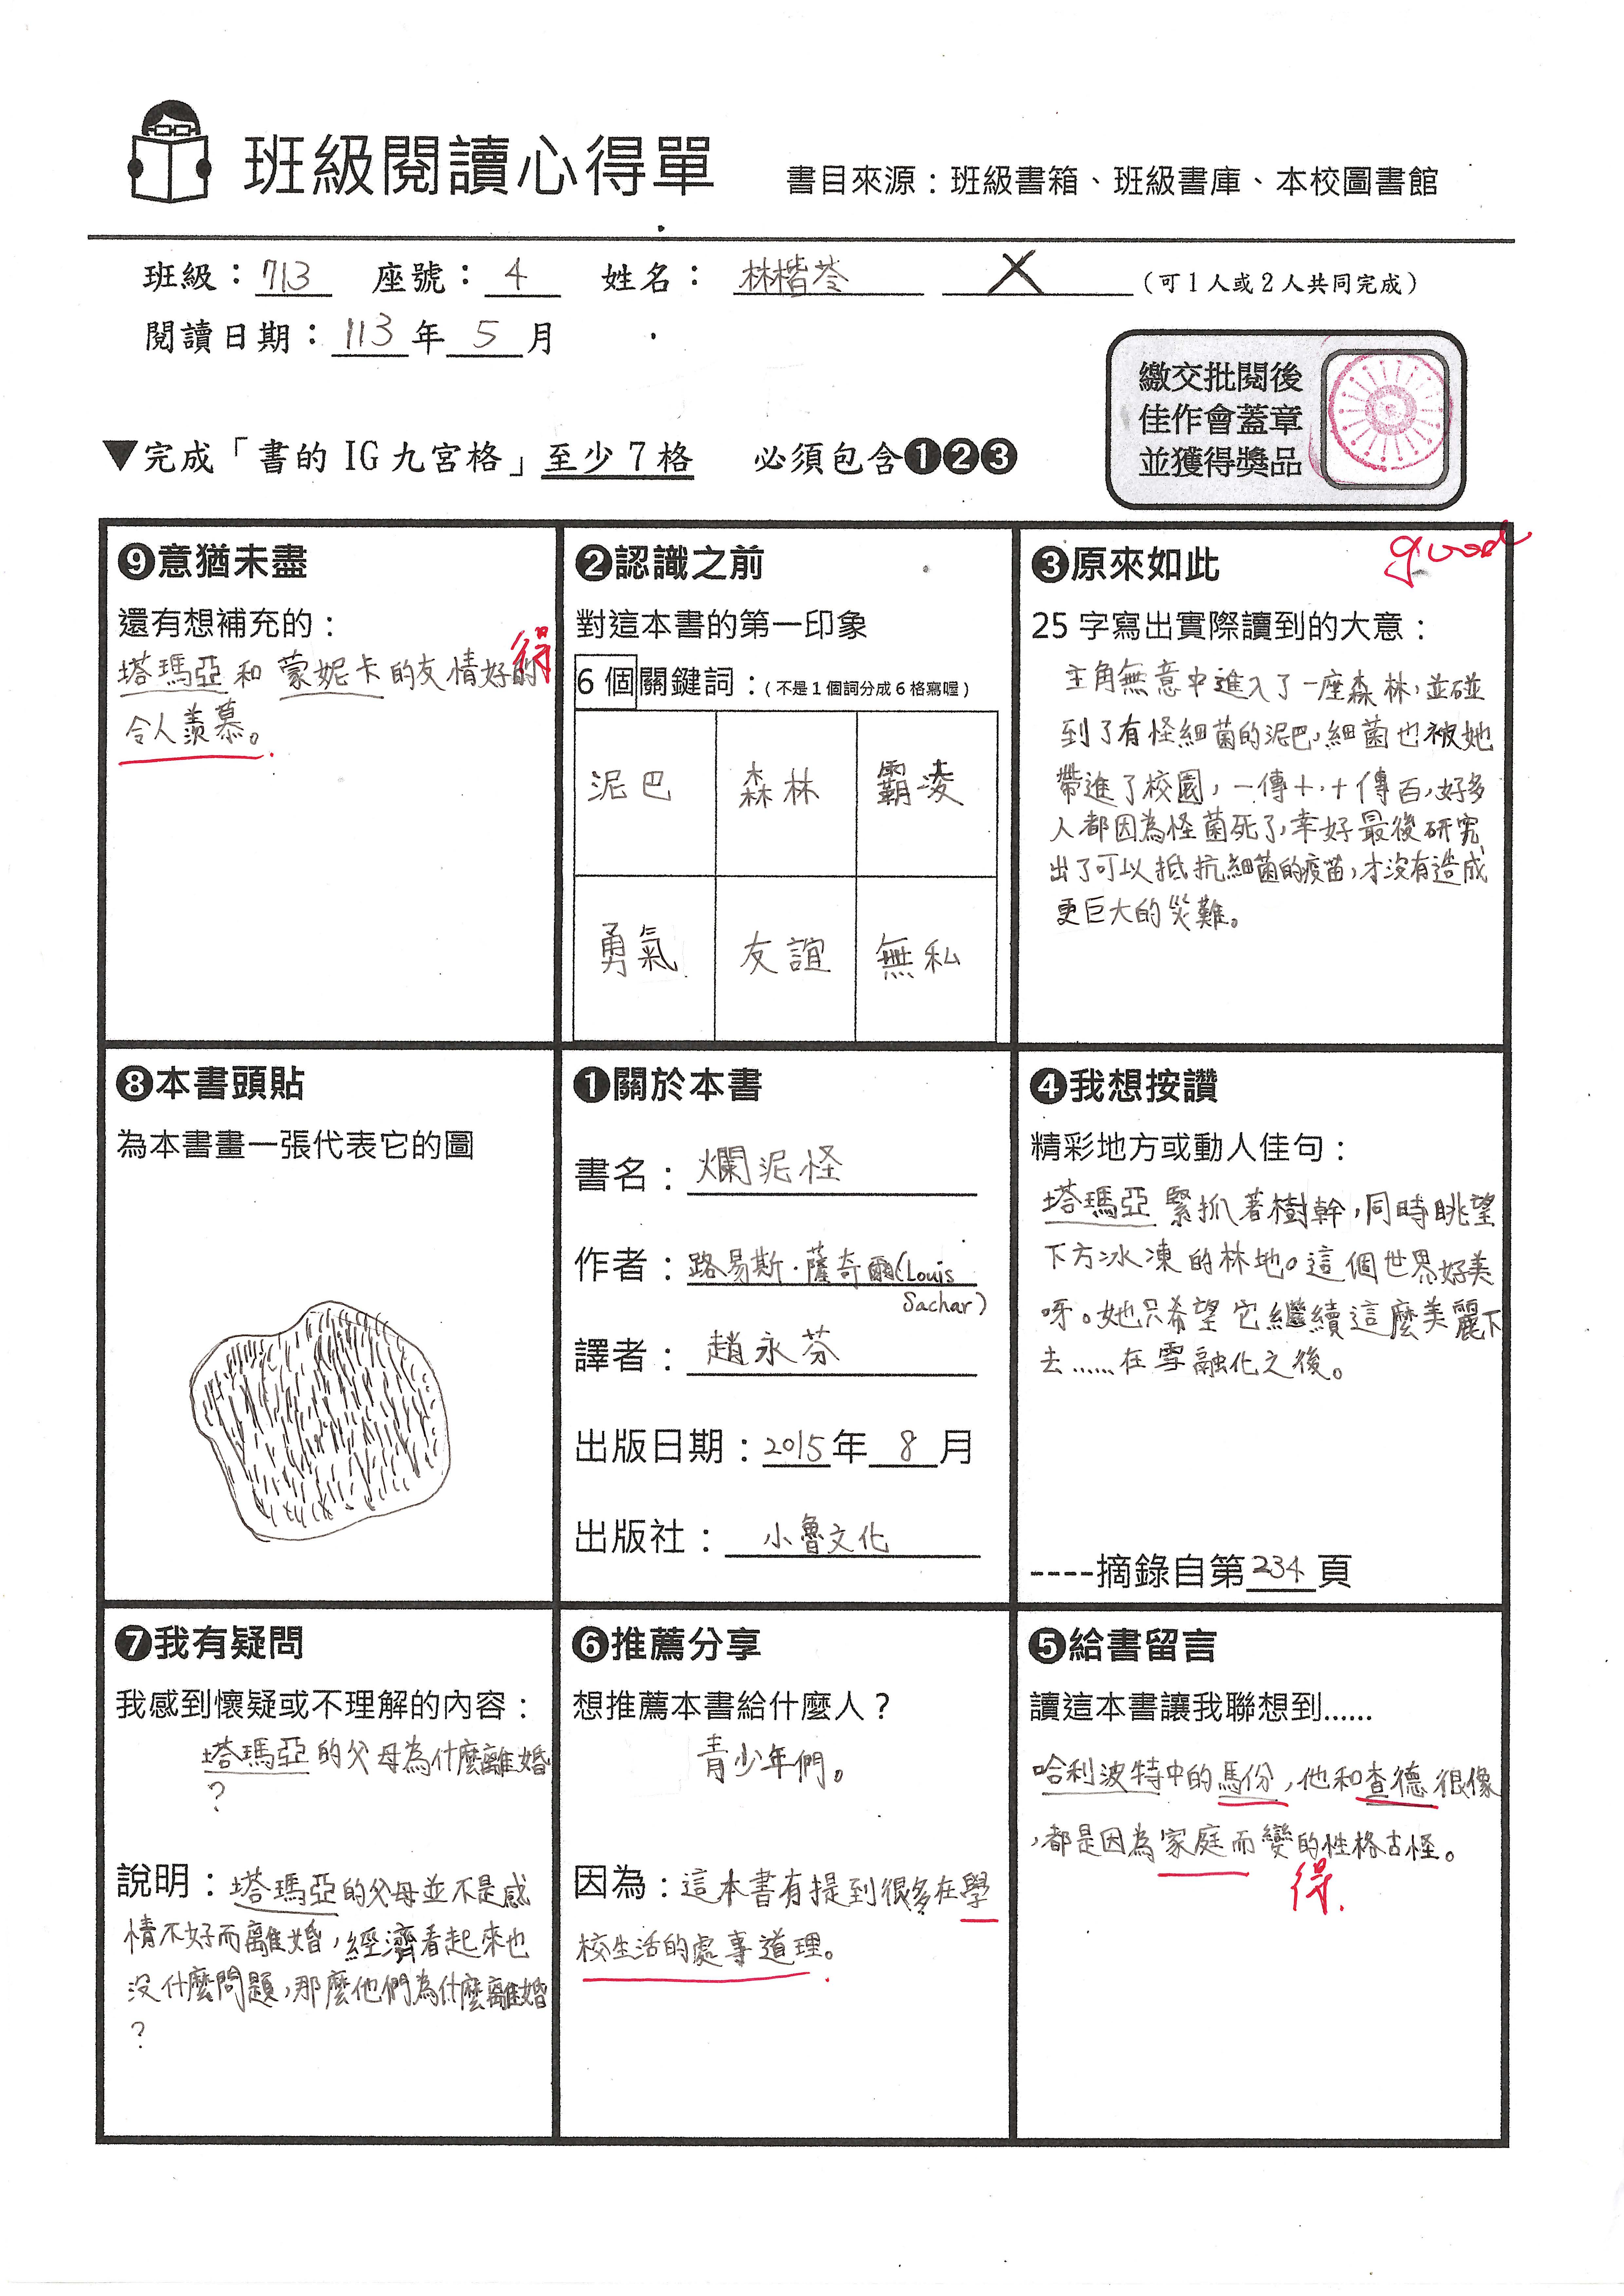 班級閱讀心得單
書目來源：班級書箱、班級書庫、本校圖書館
班級：713 座號：4 姓名：林楷苓 X （可1人或2人共同完成）
閱讀日期：113年5月
繳交批閱後
佳作會蓋章
並獲得獎品
▼完成「書的 IG 九宮格」至少 7 格 必須包含❶❷❸
❾意猶未盡
還有想補充的：
塔瑪亞和蒙妮卡的友情好的
得
令人羨慕。
❷認識之前
對這本書的第一印象
6 個關鍵詞：（不是1個詞分成6格寫喔）
泥巴 森林 霸凌
勇氣 友誼 無私
❸原來如此
good
25 字寫出實際讀到的大意：
主角無意中進入了一座森林，並碰
到了有怪細菌的泥巴，細菌也被她
帶進了校園，一傳十，十傳百，好多
人都因為怪菌死了，幸好最後研究
出了可以抵抗細菌的疫苗，才沒有造成
更巨大的災難。
❽本書頭貼
為本書畫一張代表它的圖
❶關於本書
書名：爛泥怪
作者：路易斯·薩奇爾(Louis
Sachar)
譯者：趙永芬
出版日期：2015年8月
出版社：小魯文化
❹我想按讚
精彩地方或動人佳句：
塔瑪亞緊抓著樹幹，同時眺望
下方冰凍的林地。這個世界好美
呀。她只希望它繼續這麼美麗下
去……在雪融化之後。
----摘錄自第234頁
❼我有疑問
我感到懷疑或不理解的內容：
塔瑪亞的父母為什麼離婚
？
說明：塔瑪亞的父母並不是感
情不好而離婚，經濟看起來也
沒什麼問題，那麼他們為什麼離婚
？
❻推薦分享
想推薦本書給什麼人？
青少年們。
因為：這本書有提到很多在學
校生活的處事道理。
❺給書留言
讀這本書讓我聯想到……
哈利波特中的馬份，他和查德很像
，都是因為家庭而變的性格古怪。
得